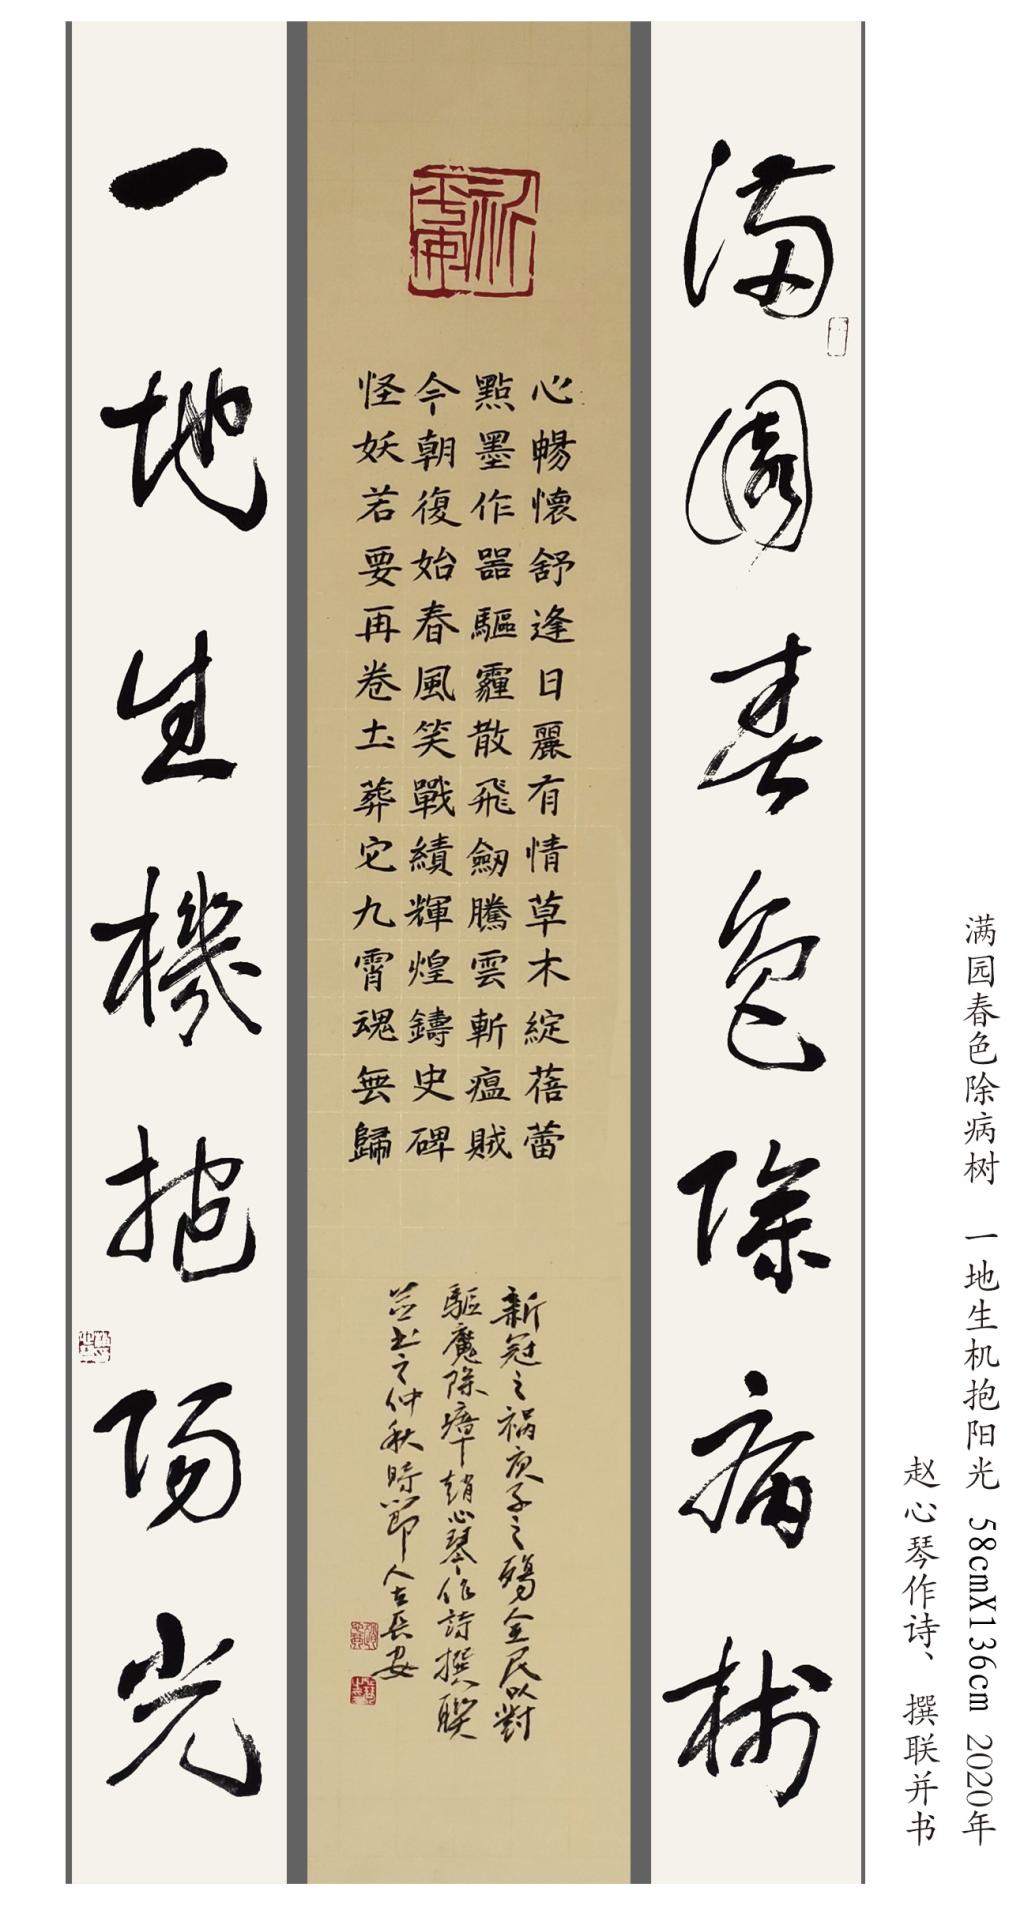 满园春色除病树 一地生机抱阳光 58cmX136cm 2020年
赵心琴作诗、撰联并书
满园春色除病树
心暢懷舒逢日麗有情草木綻蓓蕾
點墨作器驅霾散飛劒騰雲斬瘟賊
今朝復始春風笑戰績輝煌鑄史碑
怪妖若要再卷土葬它九霄魂無歸
新冠之祸庚子之殤全民以對
驅魔除瘴趙心琴作詩撰联
并书之仲秋時節人在長安
一地生機抱陽光